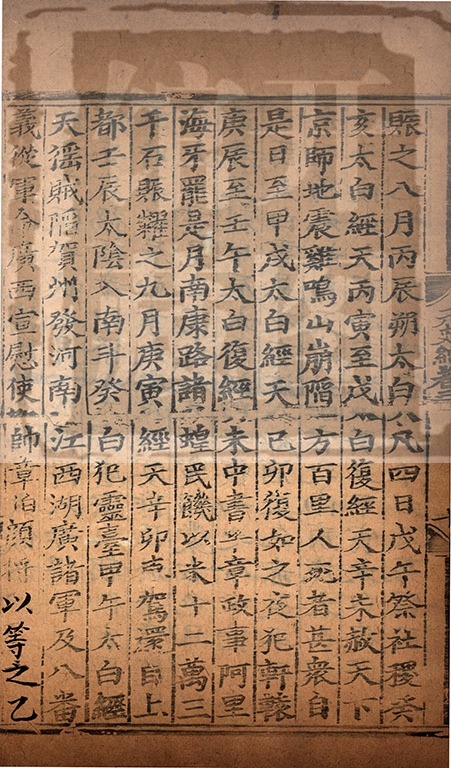 賑之八月丙辰朔太白 凡四日戊午祭社稷癸
亥太白經天丙寅至戊 白復經天辛未赦天下
京師地震雞鳴山崩陷 方百里人死者甚衆自
是日至甲戌太白經天 己卯復如之夜犯軒轅
庚辰至壬午太白復經 未中書平章政事阿里
海牙罷是月南康路諸 蝗民饑以米十二萬三
千石賑糶之九月庚寅 經天辛卯 駕還自上
都壬辰太陰入南斗癸 白犯靈臺甲午太白經
天猺賊陷賀州發河南 江西湖廣諸軍及八番
義從軍令廣西宣慰使 帥章伯顏將以等之乙